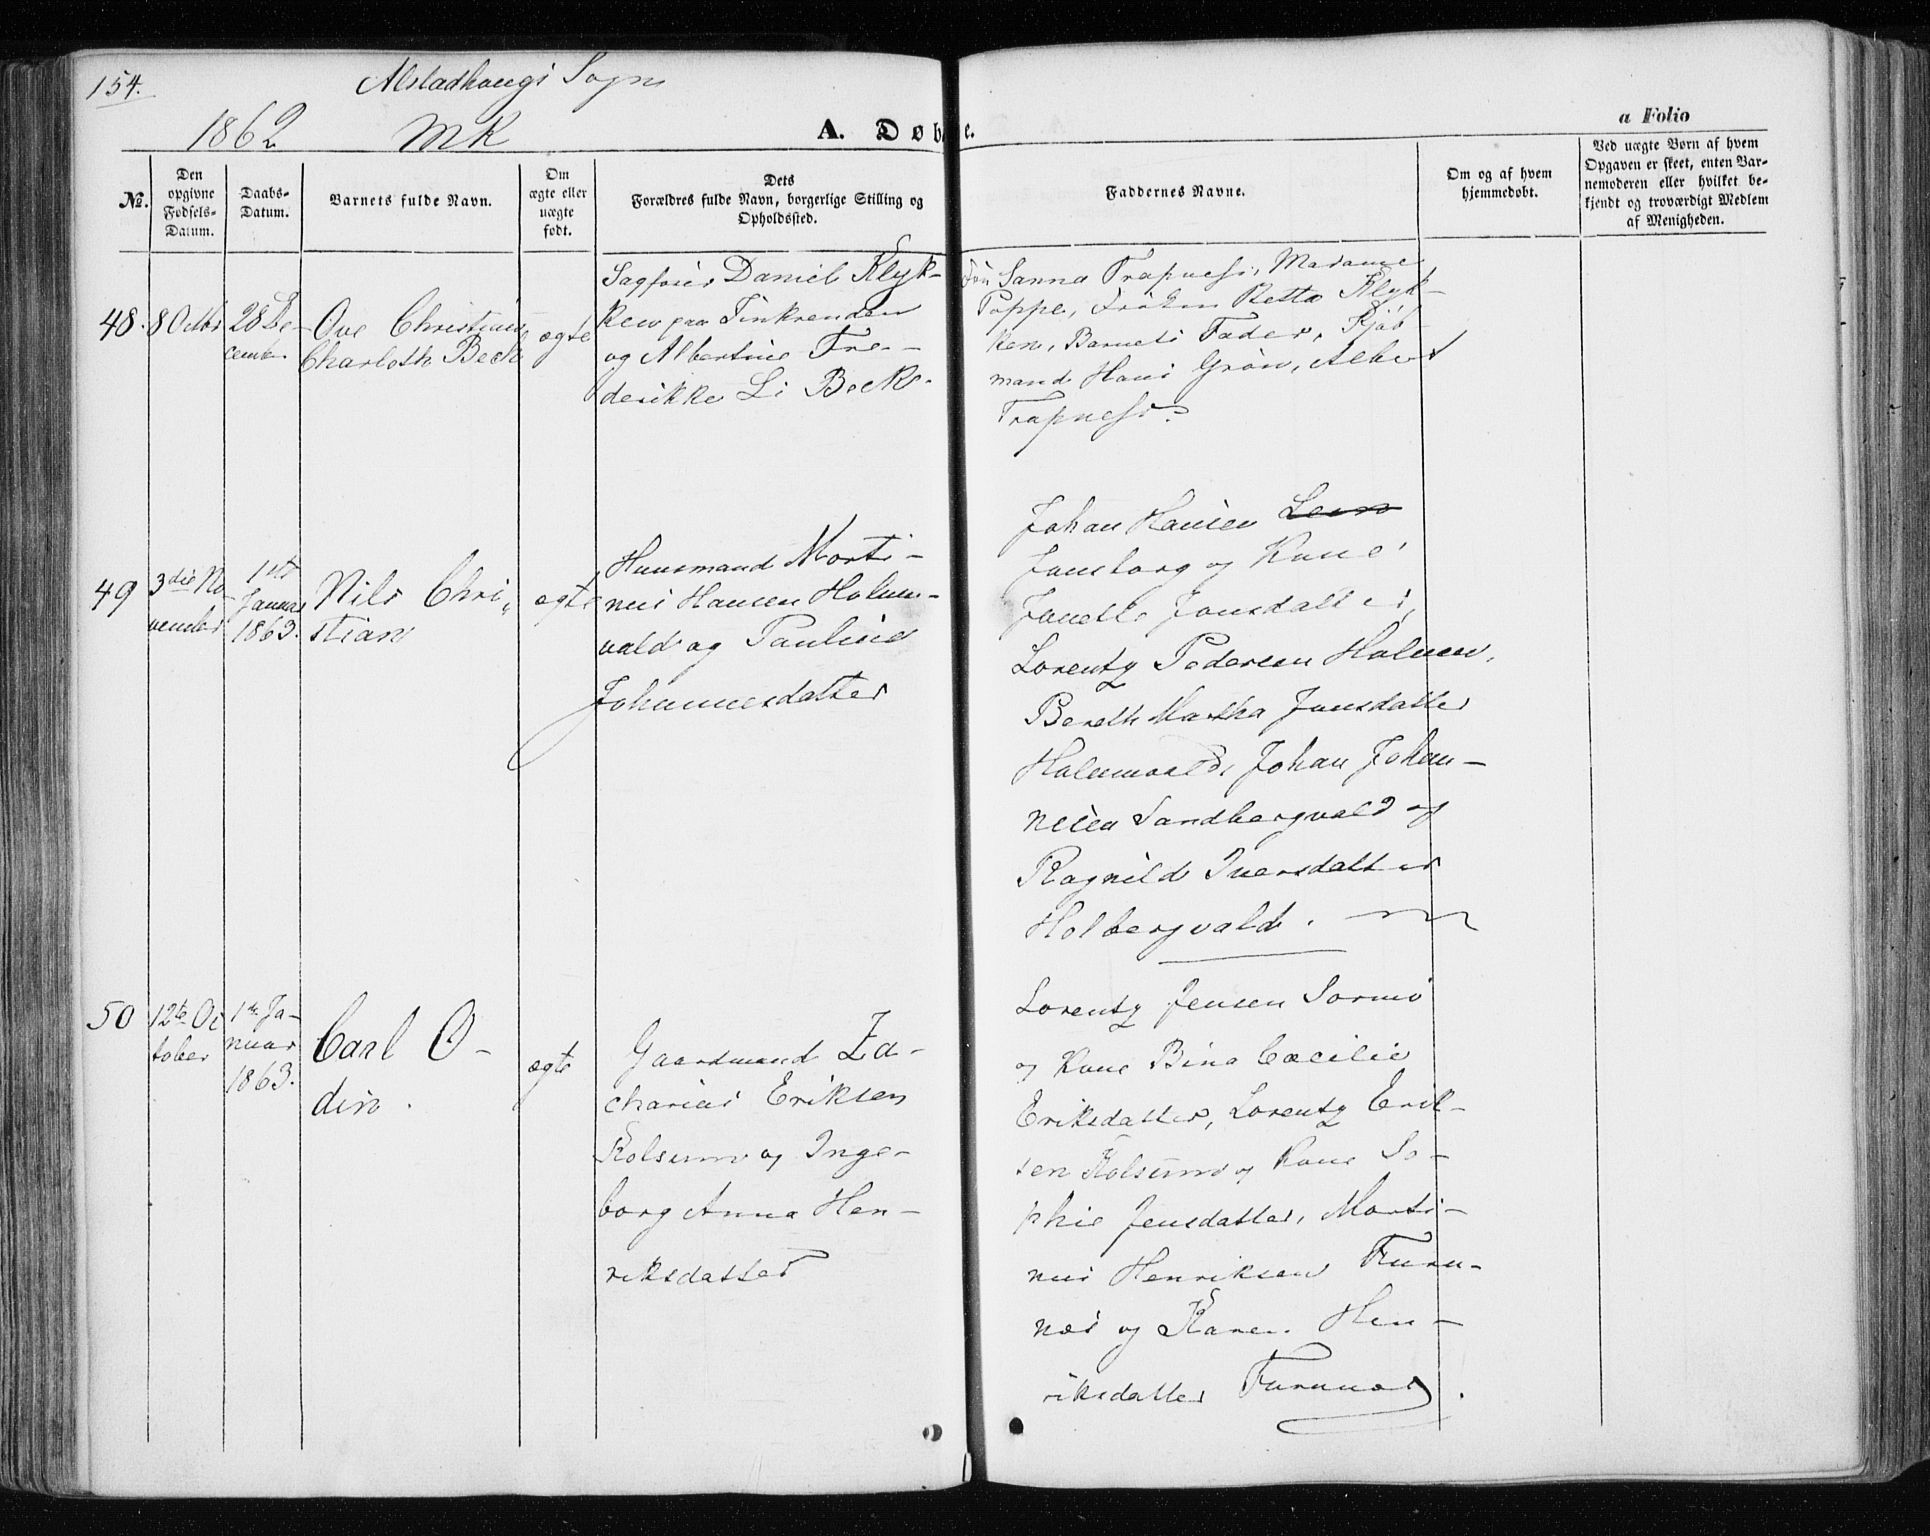 154.
Alstadhougs Sogn
1862 MK
A. Døb e.
a Folio
No.
Den opgivne Fødsels-Datum.
Daabs-Datum.
Barnets fulde Navn.
Om ægte eller uægte født.
Dets Forældres fulde Navn, borgerlige Stilling og Opholdssted.
Faddernes Navne.
Om og af hvem hjemmedøbt.
Ved uægte Børn af hvem Opgaven er skeet, enten Barnemoderen eller hvilket bekjendt og troværdigt Medlem af Menigheden.
48.
8 Octbr
28 De-
cember
Ove Christian
Charloth Beck
ægte
Sagfører Daniel Klyk-
ken paa
og Albertine Fre-
derikke Li Beck.
Sanna Trapness, Madame
Poppe, Frøken Retta Klyk-
ken, Barnets Fader, Kjøb-
mand Hans Grøn, Albert
Trapness.
49
3die No-
vember
1ste
Januar
1863.
Nils Chri-
stian
ægte
Huusmand Morti-
nus Hansen Holm-
vald og Pauline
Johannesdatter
Johan Hansen
Jonsborg og Kone
Janette Jonsdatter,
Lorentz Pedersen Holmen,
Bereth Martha Jonsdatter
Holmvald, Johan Johan-
nesen Sandbergvald og
Ragnild Iversdatter
Holbergvald.
50
12te Oc
tober
1ste Ja-
nuar
1863.
Carl O-
din.
ægte
Gaardmand Za-
charias Eriksen
Kolsumv og Inge-
borg Anna Hen-
riksdatter
Lorentz Jensen Sørmo
og Kone Bina Cæcilie
Eriksdatter, Lorentz Erik-
sen Kolsumv og Kone So-
phie Jensdatter, Morti-
nus Henriksen Furu-
næs og Karen Hen-
riksdatter Furunæs.